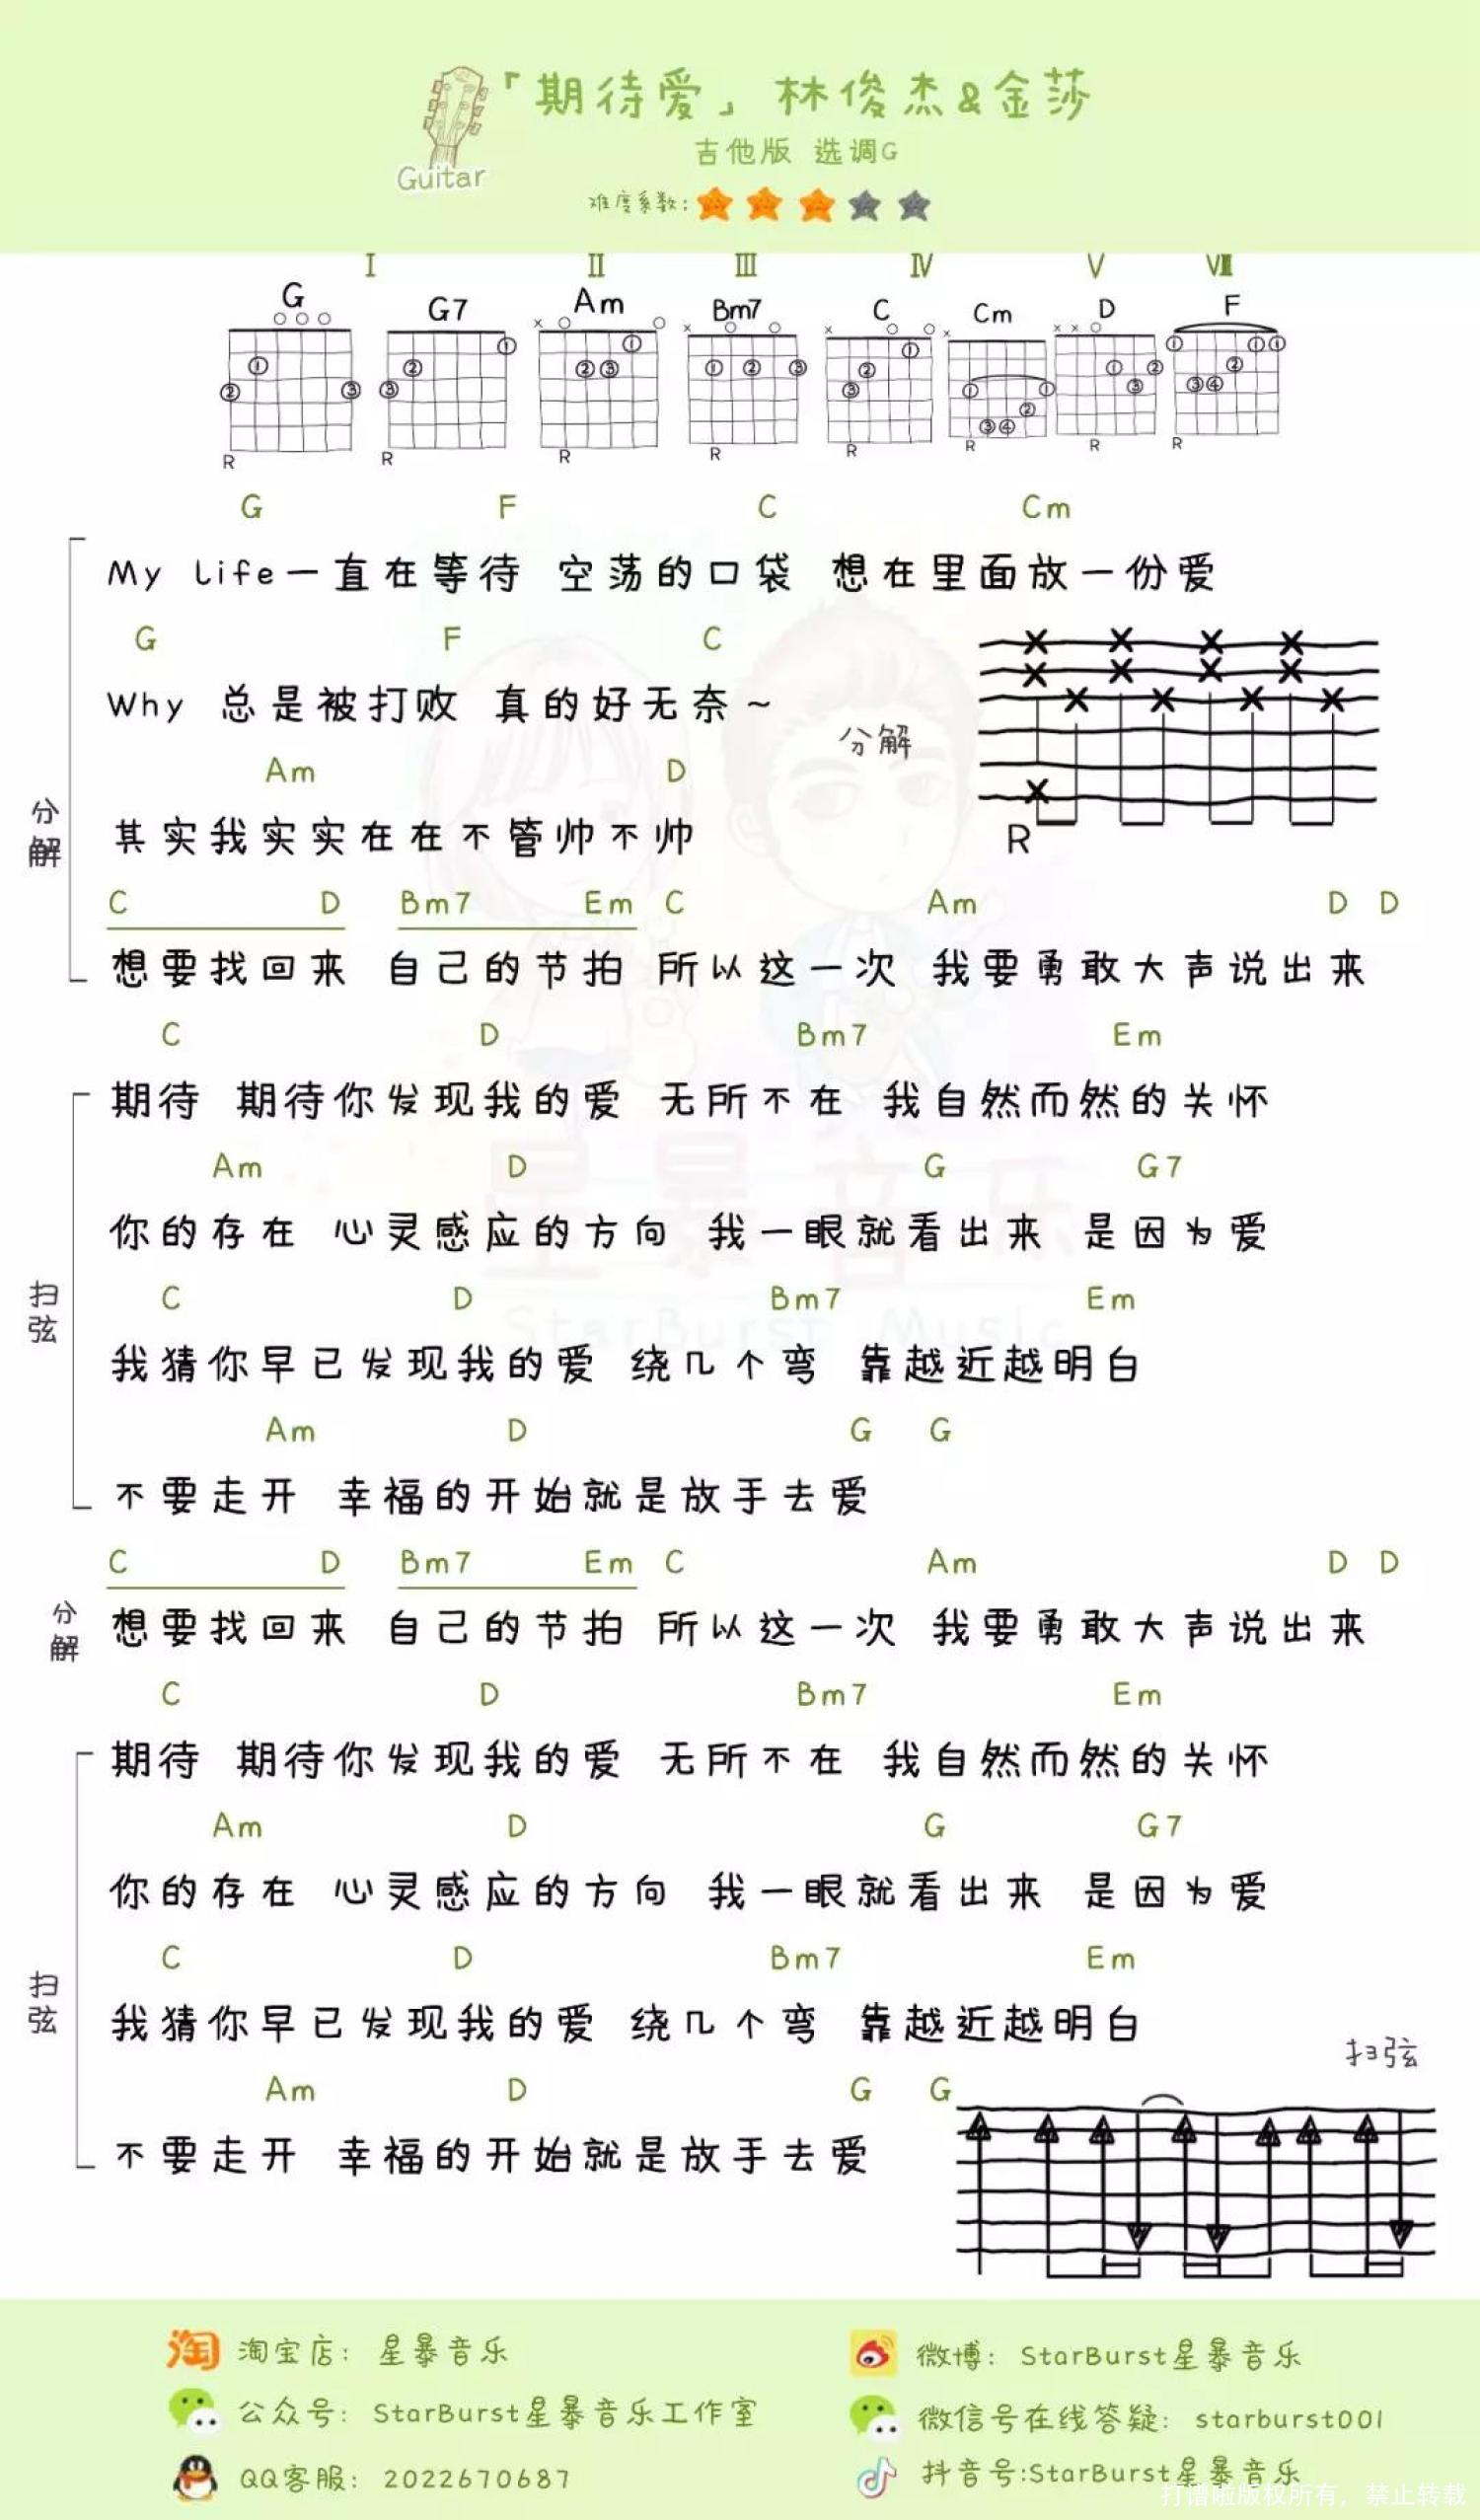 「期待爱」林俊杰&金莎
Guitar
吉他版 选调G
难度系数:
Ⅰ Ⅱ Ⅲ Ⅳ Ⅴ Ⅷ
G G7 Am Bm7 C Cm D F
R R R R R R R R
G F C Cm
My life一直在等待 空荡的口袋 想在里面放一份爱
G F C
Why 总是被打败 真的好无奈~
分解
R
Am D
分解
其实我实实在在不管帅不帅
C D Bm7 Em C Am D D
想要找回来 自己的节拍 所以这一次 我要勇敢大声说出来
C D Bm7 Em
期待 期待你发现我的爱 无所不在 我自然而然的关怀
Am D G G7
你的存在 心灵感应的方向 我一眼就看出来 是因为爱
星暴音乐
扫弦
C D Bm7 Em
StarBurst Music
我猜你早已发现我的爱 绕几个弯 靠越近越明白
Am D G G
不要走开 幸福的开始就是放手去爱
C D Bm7 Em C Am D D
分解
想要找回来 自己的节拍 所以这一次 我要勇敢大声说出来
C D Bm7 Em
期待 期待你发现我的爱 无所不在 我自然而然的关怀
Am D G G7
你的存在 心灵感应的方向 我一眼就看出来 是因为爱
扫弦
C D Bm7 Em
我猜你早已发现我的爱 绕几个弯 靠越近越明白
扫弦
Am D G G
不要走开 幸福的开始就是放手去爱
淘 淘宝店: 星暴音乐
微博: StarBurst星暴音乐
公众号: StarBurst星暴音乐工作室
微信号在线答疑: starburst001
QQ客服: 2022670687
抖音号:StarBurst星暴音乐
打谱啦版权所有，禁止转载